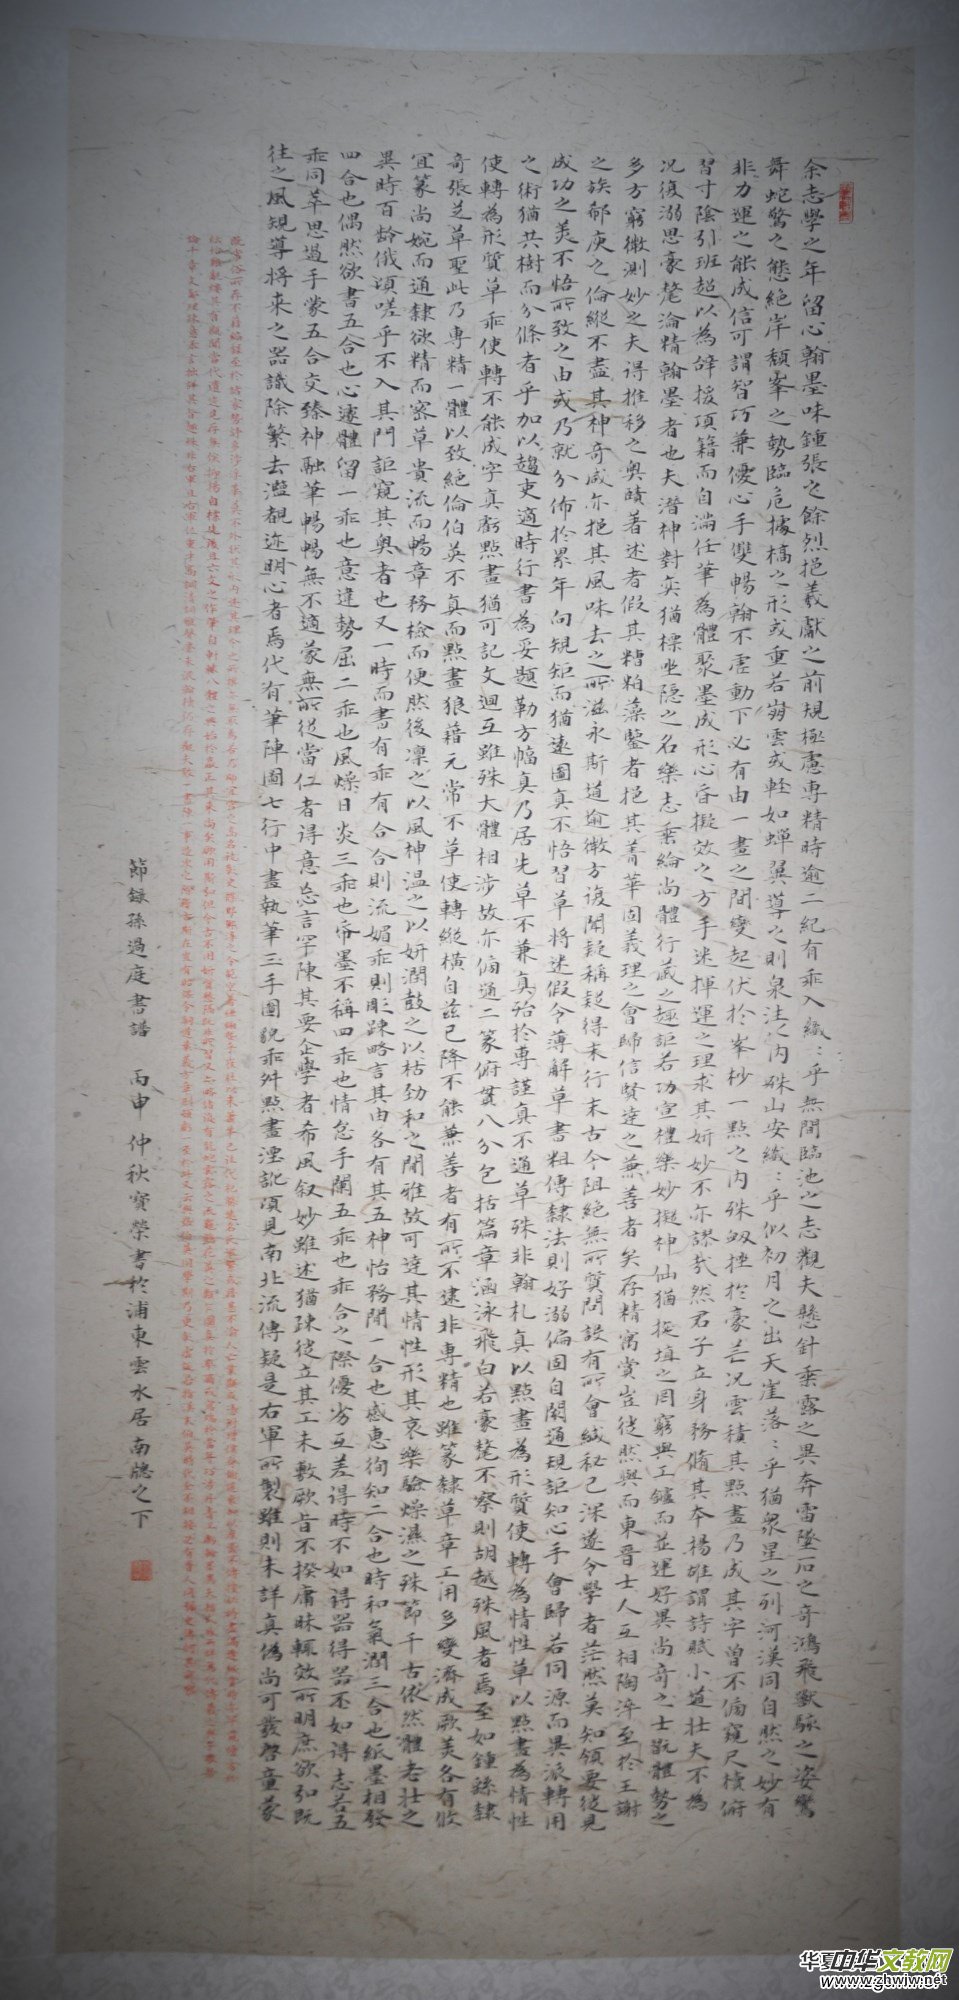 余志學之年留心翰墨味鍾張之餘烈挹羲獻之前規極慮專精時逾二紀有乖入繊=乎無間臨池之志觀夫懸針垂露之異奔雷墜石之奇鴻飛獸駭之姿鸞
舞蛇驚之態絶岸頽峯之勢臨危據槁之形或重若崩雲或輕如蟬翼導之則泉注之內殊山安繊=乎似初月之出天崖落=乎猶衆星之列河漢同自然之妙有
非力運之能成信可謂智巧兼優心手雙暢翰不虛動下必有由一畫之間變起伏於峯杪一點之內殊衂挫於豪芒況雲積其點畫乃成其字曾不傍窺尺牘俯
習寸陰引班超以為辭援項籍而自滿任筆為體聚墨成形心昏擬效之方手迷揮運之理求其妍妙不亦謬哉然君子立身務脩其本揚雄謂詩賦小道壯夫不為
況復溺思豪氂淪精翰墨者也夫潛神對奕猶標坐隱之名樂志垂綸尚體行藏之趣詎若功宣禮樂妙擬神仙猶埏埴之罔窮與工鑪而並運好異尚奇之士翫體勢之
多方窮微測妙之夫得推移之奥賾著述者假其糟粕藻鑒者挹其菁華固義理之會歸信賢達之兼善者矣存精寓賞豈徒然與而東晉士人互相陶淬至於王謝
之族郗庾之倫縱不盡其神奇咸亦挹其風味去之所滋永斯道逾微方復聞疑稱疑得末行末古今阻絶無所質問設有所會緘秘已深遂令學者茫然莫知領要徒見
成功之美不悟所致之由或乃就分佈於累年向規矩而猶遠圖真不悟習草將迷假令薄解草書粗傳隸法則好溺偏固自闋通規詎知心手會歸若同源而異派轉用
之術猶共樹而分條者乎加以趨吏適時行書為妥題勒方幅真乃居先草不兼真殆於專謹真不通草殊非翰札真以點畫為形質使轉為情性草以點畫為情性
使轉為形質草乖使轉不能成字真虧點畫猶可記文迴互雖殊大體相涉故亦傍通二篆俯貫八分包括篇章涵泳飛白若豪氂不察則胡越殊風者焉至如鍾繇隸
奇張芝草聖此乃專精一體以致絶倫伯英不真而點畫狼藉元常不草使轉縱橫自茲已降不能兼善者有所不逮非專精也雖篆隸草章工用多變濟成厥美各有攸
宜篆尚婉而通隸欲精而密草貴流而暢章務檢而便然後凛之以風神温之以妍潤鼓之以枯勁和之閒雅故可達其情性形其哀樂驗燥濕之殊節千古依然體老壯之
異時百齡俄頃嗟乎不入其門詎窺其奥者也又一時而書有乖有合合則流媚乖則彫疎略言其由各有其五神怡務閒一合也感惠徇知二合也時和氣潤三合也紙墨相發
四合也偶然欲書五合也心遽體留一乖也意違勢屈二乖也風燥日炎三乖也帋墨不稱四乖也情怠手闌五乖也乖合之際優劣互差得時不如得器得器不如得志若五
乖同萃思遏手蒙五合交臻神融筆暢暢無不適蒙無所從當仁者得意忘言罕陳其要企學者希風叙妙雖述猶疎徒立其工未敷厥旨不揆庸昧輒效所明庶欲弘既
往之風規導將來之器識除繁去濫覩迹明心者焉代有筆陣圖七行中畫執筆三手圖貌乖舛點畫湮訛頃見南北流傳疑是右軍所製雖則未詳真偽尚可發啓童蒙
節録孫過庭書譜 丙申仲秋寳榮書於浦東雲水居南牕之下
华夏中华文教网
www.zhwjw.net